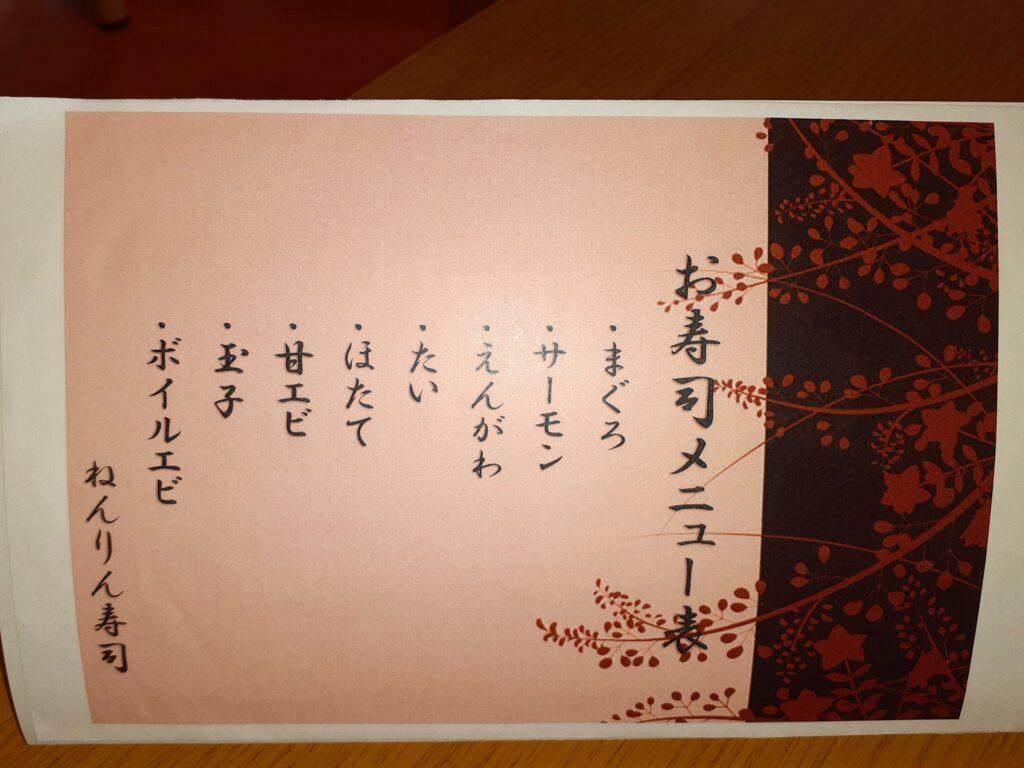 お寿司メニュー表
・まぐろ
・サーモン
・えんがわ
・たい
・ほたて
・甘エビ
・玉子
・ボイルエビ
ねんりん寿司